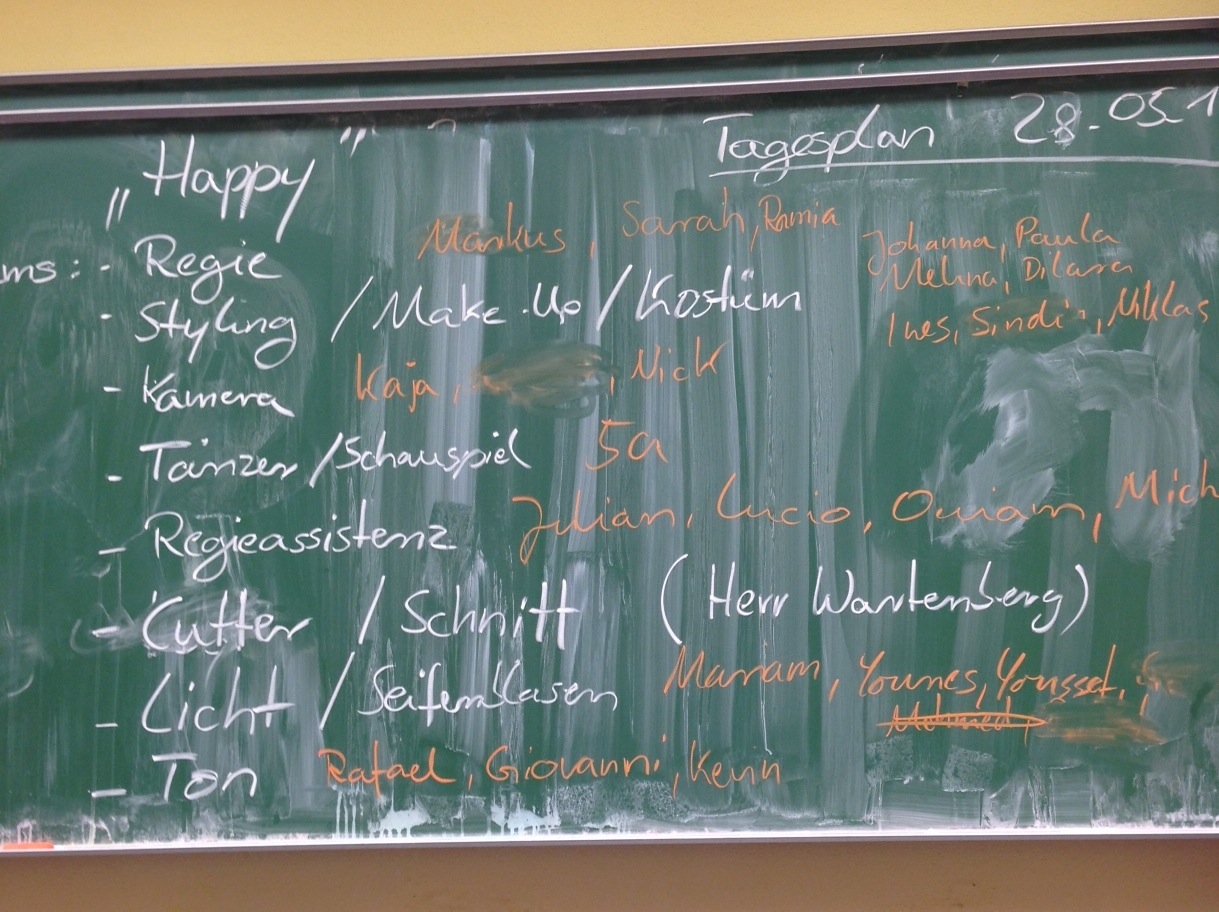 Tagesplan 28.05.1
„Happy"
ms: - Regie Markus, Sarah, Ramia
Johanna, Paula
Melina, Dilara
- Styling / Make-Up / Kostüm Ines, Sindi, Niklas
- Kamera Kaja, , Nick
- Tänzer / Schauspiel 5a
- Regieassistenz Julian, Lucio, Ouiam, Mich
- Cutter / Schnitt (Herr Wartenberg)
- Licht / Seifenblasen Marram, Younes, Youssef,
- Ton Rafael, Giovanni, Kevin